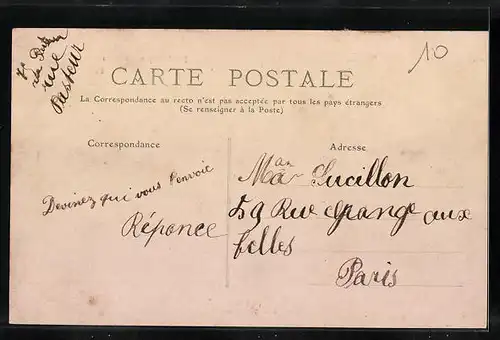 rue
Pasteur
10
CARTE POSTALE
La Correspondance au recto n'est pas acceptée par tous les pays étrangers
(Se renseigner à la Poste)
Correspondance
Adresse
Devinez qui vous l'envoie
Réponce
Lucillon
59 Rue Grange aux
belles
Paris